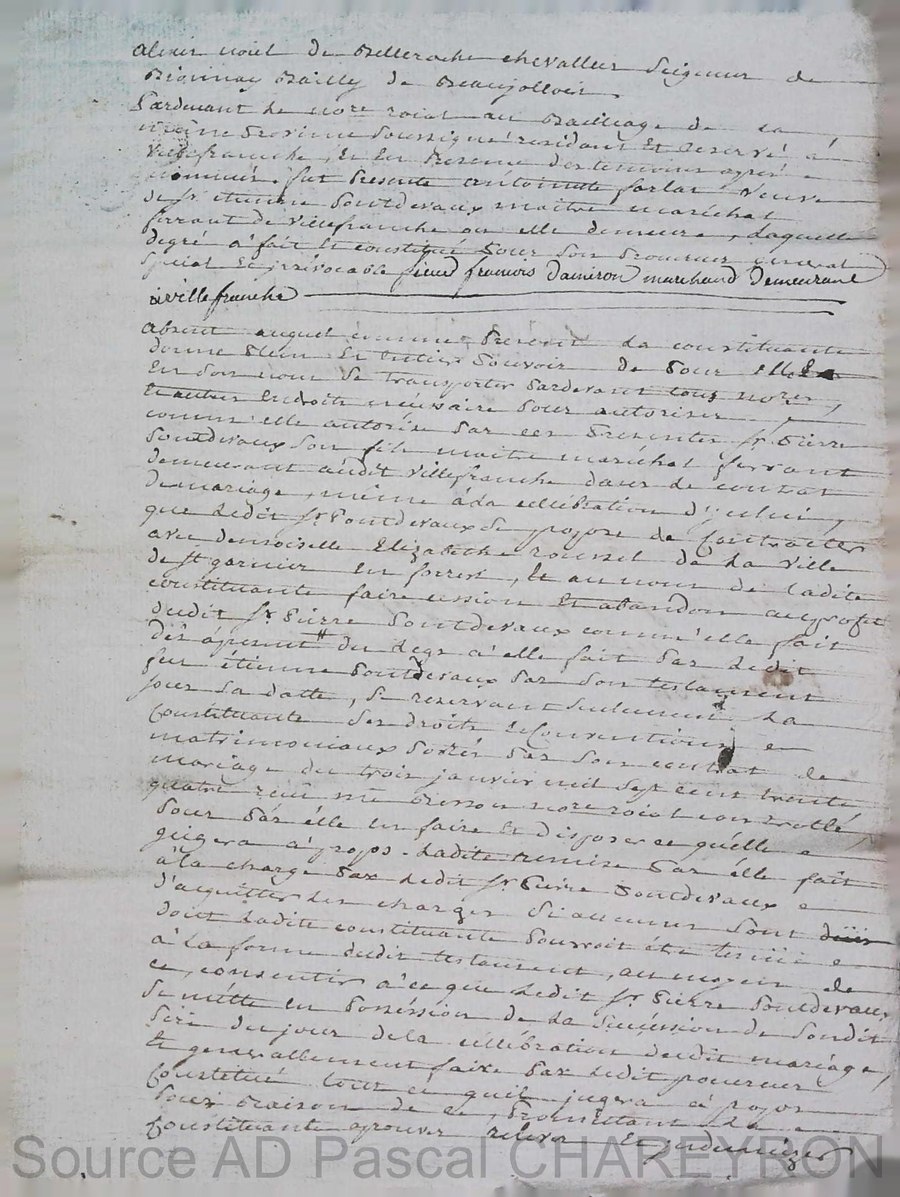 alexis noiel de Belleroche chevallier seigneur de
Bionnay Bailly de Beaujollois.
Pardevant le nore roial au Bailliage de la
même Province soussigné résidant et reservé a
Villefranche, et en presence des temoins apres
nommés. fut presente antoinette farlar veuve
de sr etienne Pontdevaux maitre maréchal
ferrant de Villefranche ou elle demeure, laquelle
degré a fait et constitué pour son procureur general
special et irrévocable sieur francois Dameron marchand Demeurant
a villefranche
absent auquel comme present la constituante
donne plein et entier pouvoir de pour elle
en son nom se transporter pardevant tous nores,
et autres endroits nécéssaire pour autoriser
comm'elle autorise par ces presentes sr Pierre
Pontdevaux son fils maitre maréchal ferrant
demeurant audit Villefranche dans le contrat
de mariage, même à la cellébration d'iceluy
que ledit sr Pontdevaux se propose de contracter
avec demoiselle Elizabethe roussel de la ville
de st garmier en forrest, et au nom de ladite
constituante faire cession et abandon au profit
dudit sr Pierre Pontdevaux comm'elle fait
dès apresent du legs a elle fait par ledit
feu étienne Pontdevaux par son testament
sous sa datte, se reservant seulement la
constituante ses droits et conventions
matrimoniaux portés par son contrat de
mariage du trois janvier mil sept cent trente
quatre reçu me Bessou nore roial controllé,
pour par élle en faire et disposer ce qu'élle
jugera a propos. ladite remise par élle fait
à la charge par ledit sr Pierre Pontdevaux
d'acquitter les charges si aucunes sont
dont ladite constituante pouvoit étre tenüe
a la forme dudit testament, au moyen de
ce, consentir à ce que ledit sr Pierre Pontdevaux
se mètte en possession de la succession de sondit
père du jour de la cellébration dudit mariage,
et generallement faire par ledit procureur
constitué tout ce quil jugera a propos
pour raison de ce, promettant la
constituante aprouver relever et indemnizer
Source AD Pascal CHAREYRON